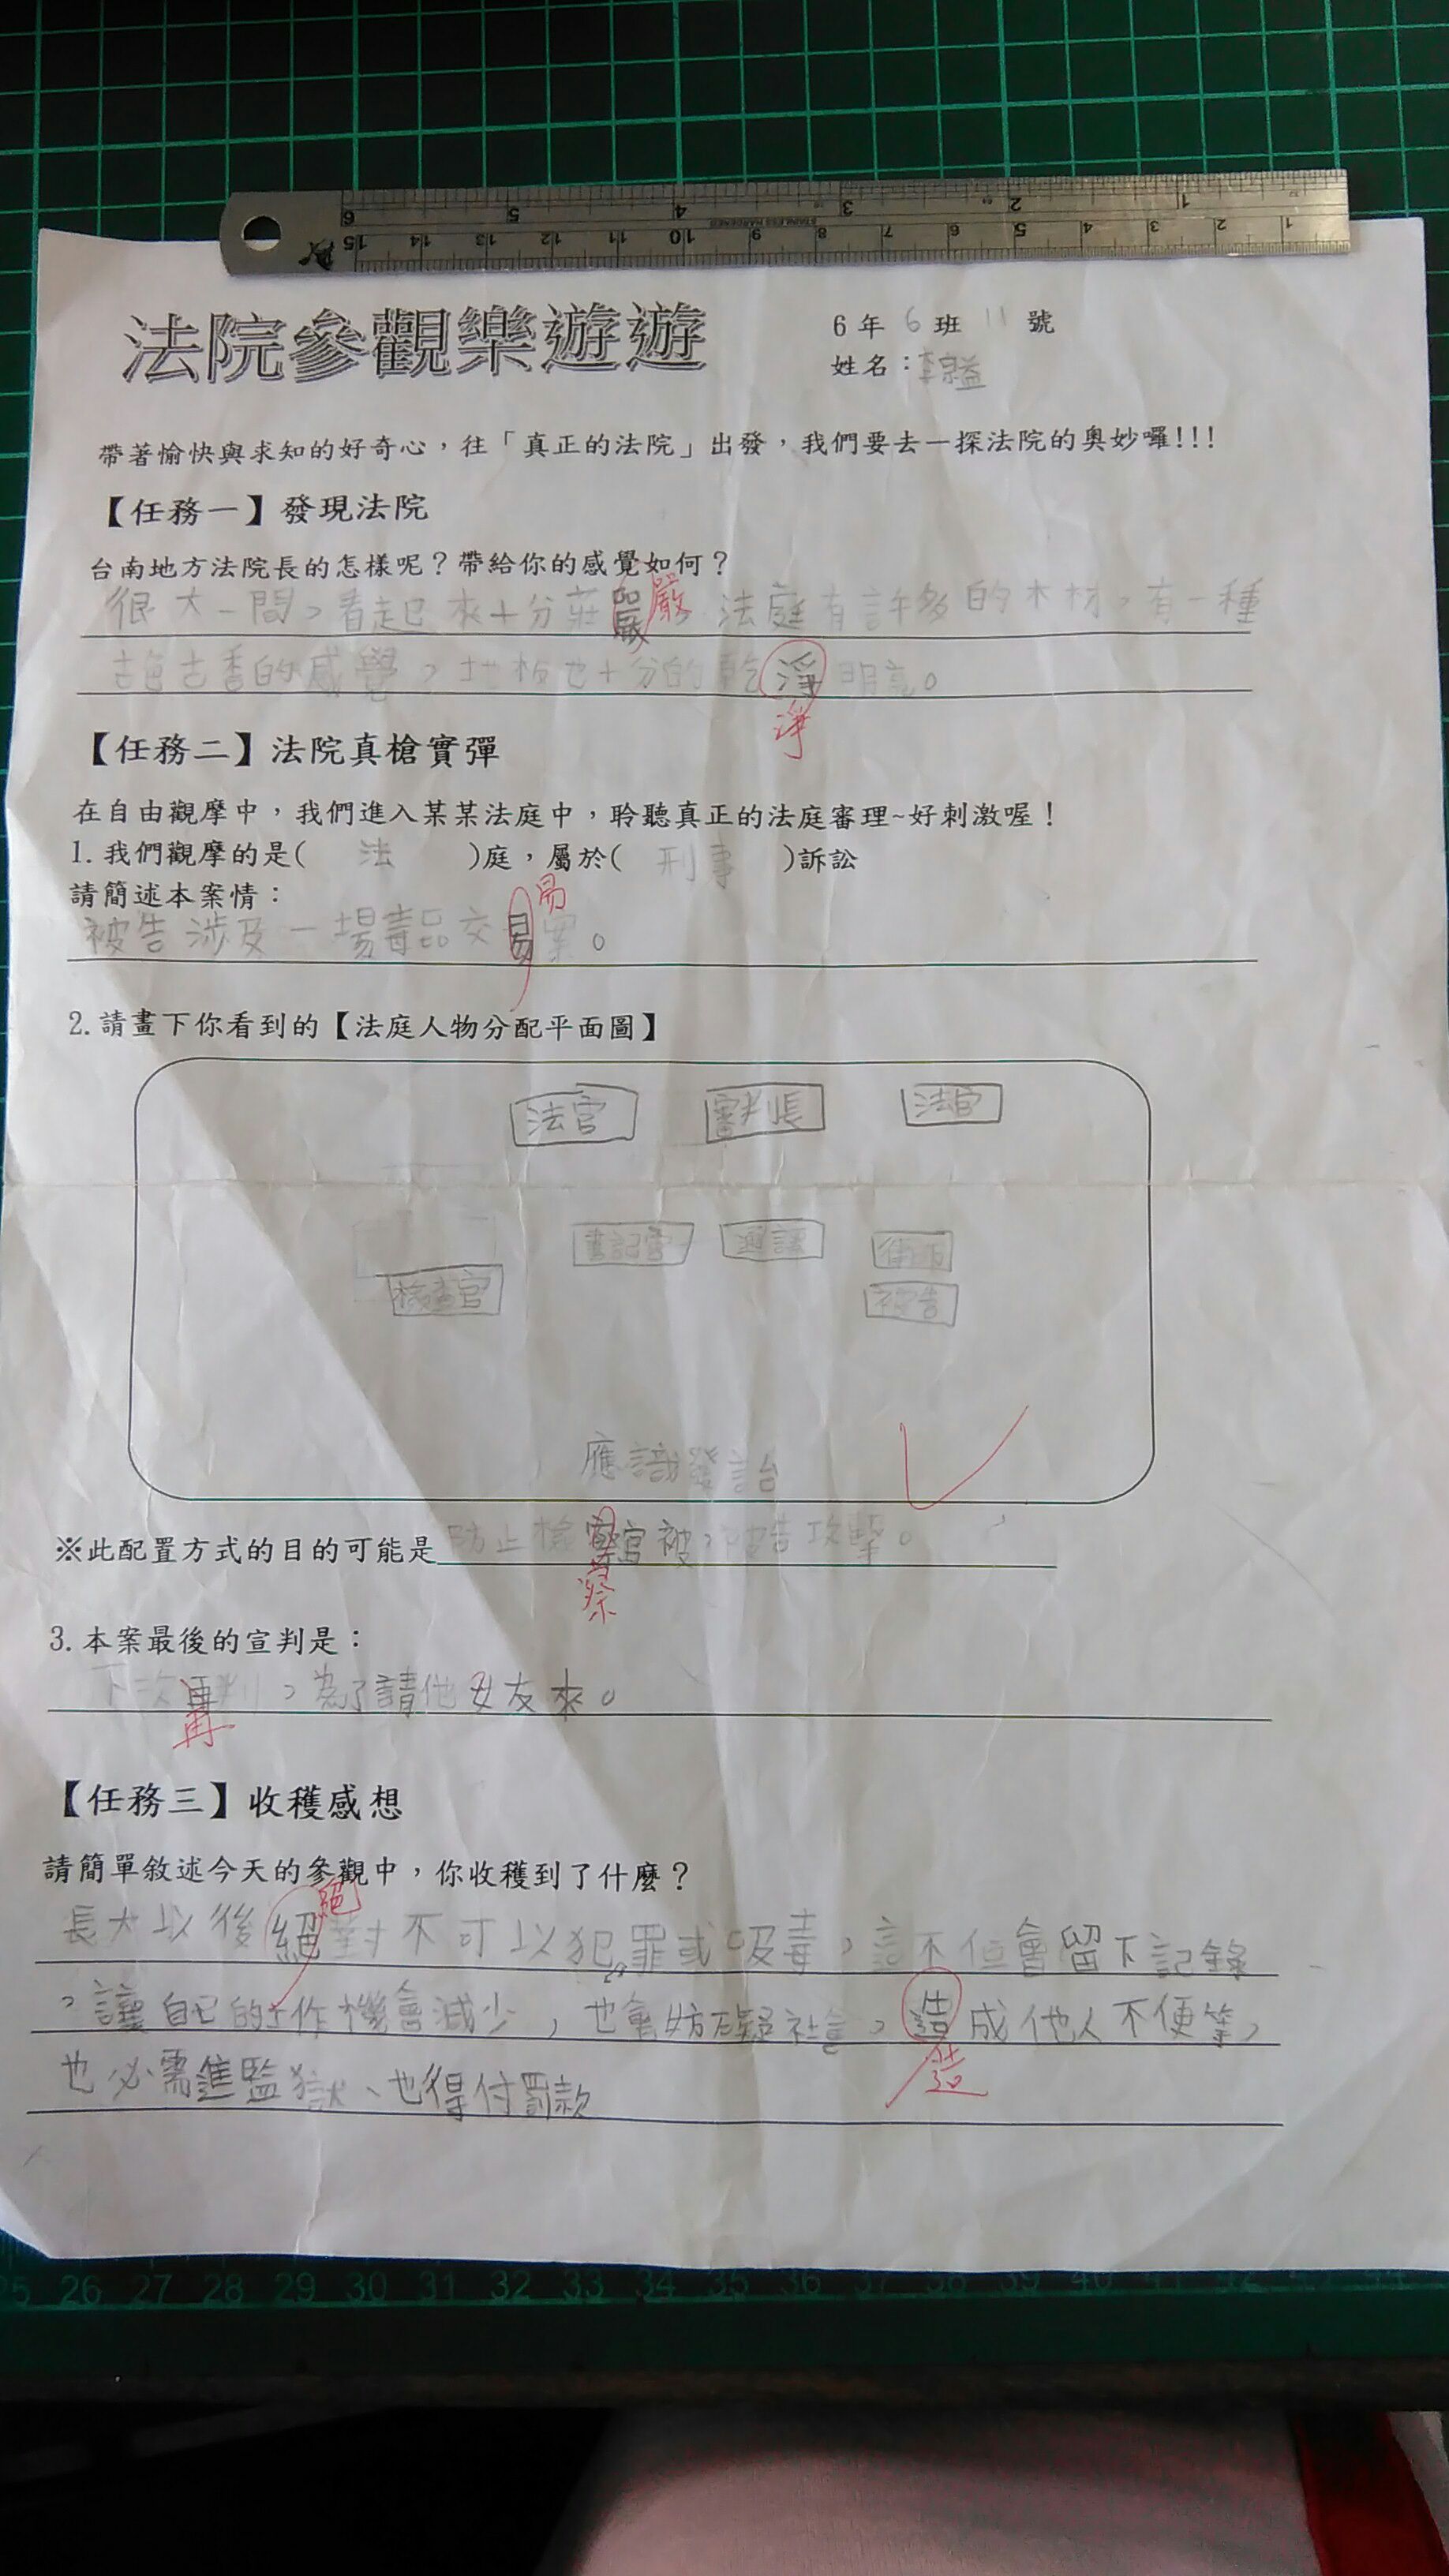 6 5 4 3 2 1
STAINLESS HARDENED
15 14 13 12 11 10 9 8 7 6 5 4 3 2 1
法院參觀樂遊遊
6 年 6 班 11 號
姓名：李
帶著愉快與求知的好奇心，往「真正的法院」出發，我們要去一探法院的奧妙囉!!!
【任務一】發現法院
台南地方法院長的怎樣呢？帶給你的感覺如何？
很大一間，看起來十分莊嚴 嚴 法庭有許多的木材，有一種
古色古香的感覺，地板也十分的乾淨明亮。
淨
【任務二】法院真槍實彈
在自由觀摩中，我們進入某某法庭中，聆聽真正的法庭審理~好刺激喔！
1.我們觀摩的是( 法 )庭，屬於( 刑事 )訴訟
請簡述本案情：
易
被告涉及一場毒品交易案。
2.請畫下你看到的【法庭人物分配平面圖】
法官 審判長 法官
書記官 通譯
檢查官 被告
應識發言台
※此配置方式的目的可能是防止檢察官被，被告攻擊。
察
3.本案最後的宣判是：
下次再判，為了請他女友來。
再
【任務三】收穫感想
請簡單敘述今天的參觀中，你收穫到了什麼？
絕
長大以後絕對不可以犯罪或吸毒，這不但會留下記錄
，讓自己的工作機會減少，也會妨礙社會，造成他人不便等，
造
也必需進監獄、也得付罰款
25 26 27 28 29 30 31 32 33 34 35 36 37 38 39 40 41 42 43 44